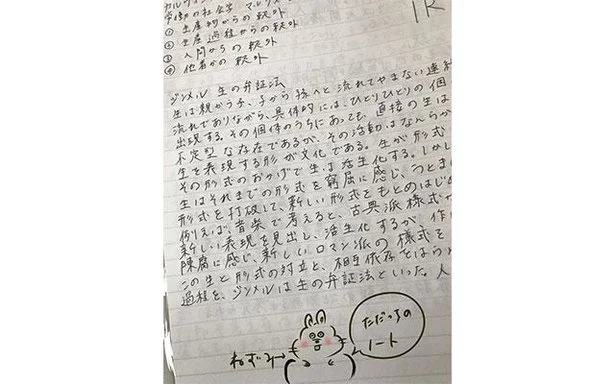 労働の社会学 マルクス
① 生産物からの疎外
② 生産過程からの疎外
③ 人間からの疎外
④ 他者からの疎外
ジンメル 生の弁証法
生は親から子、子から孫へと流れてやまない連続
流れでありながら、具体的には、ひとりひとりの個
出現する。その個体のうちにあっても、直接の生は
不定型な存在であるが、その活動はなんらか
生を表現する形が文化である。生が形式
その形式のおかげで生は活生化する。しかし
生はそれまでの形式を窮屈に感じ、うとまし
形式を打破して、新しい形式をもとめはじめ
例えば、音楽で考えると、古典派様式
新しい表現を見出し、活生化するが、作
陳腐に感じ、新しいロマン派の様式を
この生と形式の対立と、相互依存をはらん
過程を、ジンメルは生の弁証法といった。人
ねずみ→
ただっちの
ノート